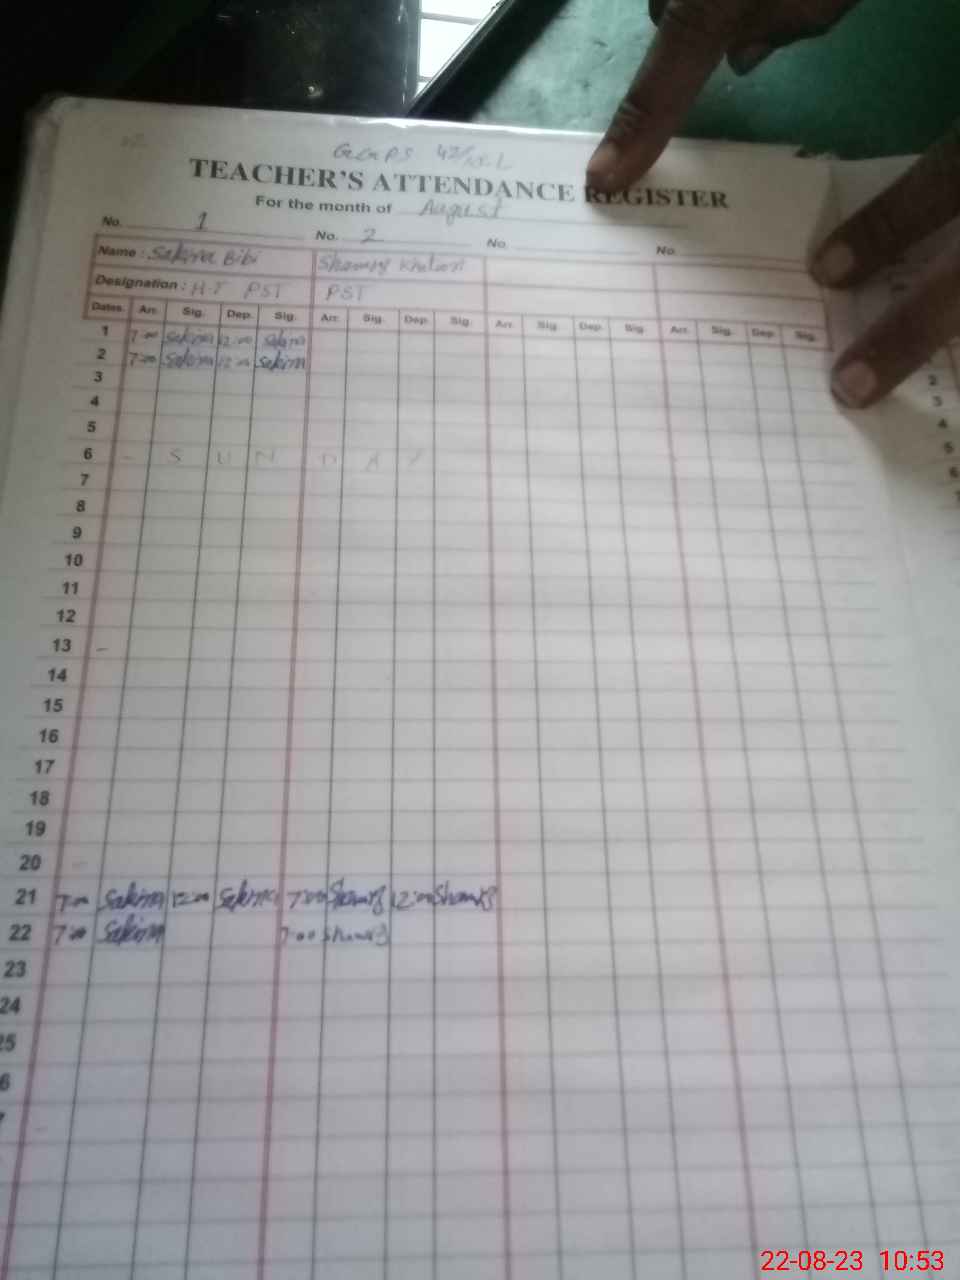 GGPS 42/
TEACHER'S ATTENDANCE REGISTER
For the month of August
No. 1 No. 2 No. No.
Name : Sakina Bibi Khatoon
Designation : H.T PST PST
Dates. Arr. Sig. Dep. Sig. Arr. Sig. Dep. Sig. Arr. Sig. Dep. Sig. Arr. Sig. Dep. Sig.
1 7:00 Sakina 12:00 Sakina
2 7:00 Sakina 12:00 Sakina
3
4
5
6 - S U N D A Y
7
8
9
10
11
12
13 -
14
15
16
17
18
19
20 -
21 7:00 Sakina 12:00 Sakina 7:00 12:00
22 7:00 Sakina 7:00
23
24
25
6
2
3
4
5
6
22-08-23 10:53